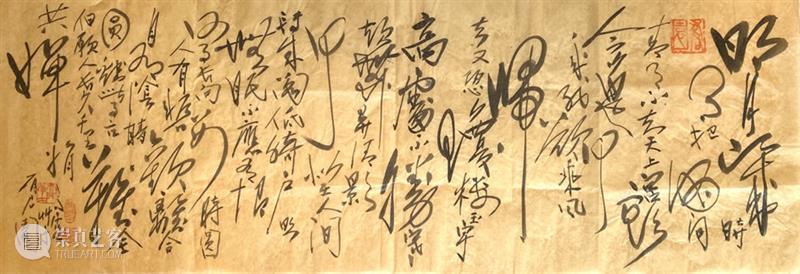 明月几时
有把酒问
青天不知天上宫阙
今夕是何
年我欲乘风
归
去又恐琼楼玉宇
高处不胜寒
起舞弄清影
何似在人间
转朱阁低绮户照
无眠不应有恨
何事长向别时圆
人有悲欢离合
月有阴晴
圆缺此事古难全
但愿人长久千里
共婵娟
崇真艺客
WWW.TRUEART.COM